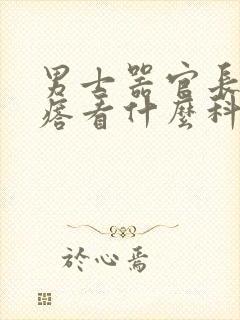 男士器官長
痞看什麼科
於心焉